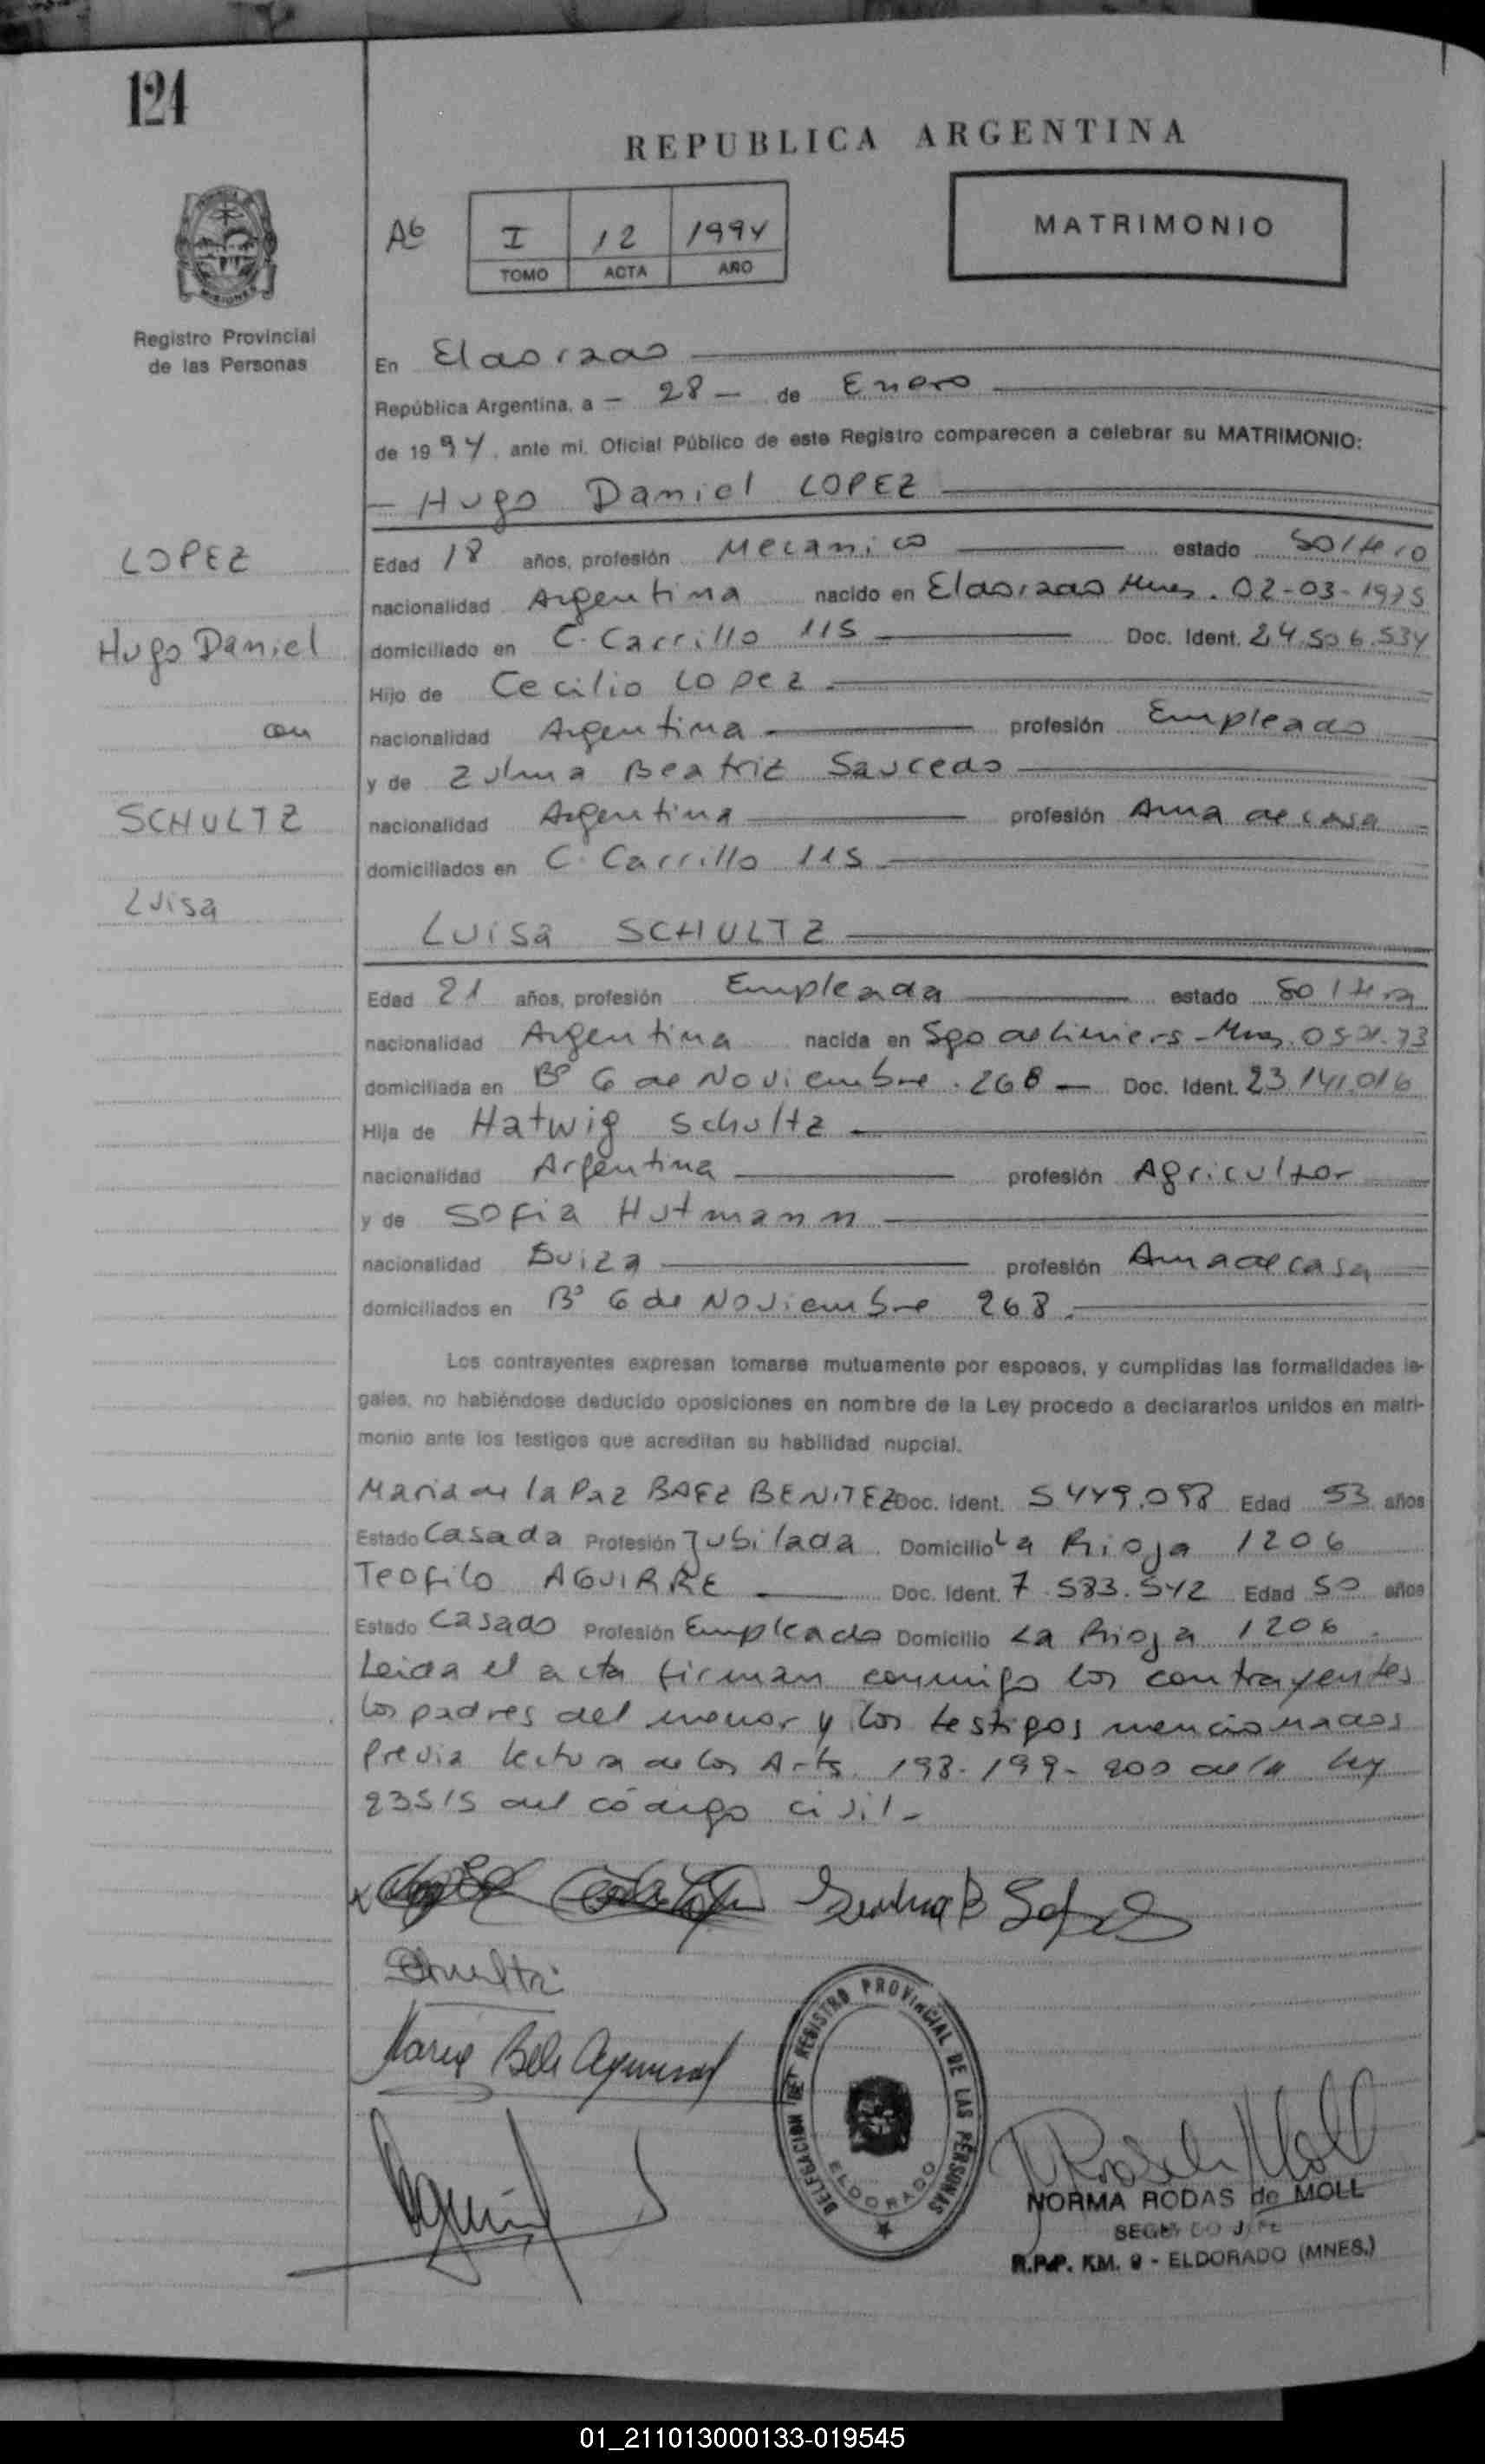 124
REPUBLICA ARGENTINA
MATRIMONIO
I 12 1994
TOMO ACTA AÑO
Registro Provincial
de las Personas
En Eldorado
República Argentina, a - 28 - de Enero
de 1994, ante mi, Oficial Público de este Registro comparecen a celebrar su MATRIMONIO:
- Hugo Daniel LOPEZ
LOPEZ
Hugo Daniel
con
SCHULTZ
Luisa
Edad 18 años, profesión Mecanico estado Soltero
nacionalidad Argentina nacido en Eldorado Mnes. 02-03-1975
domiciliado en C. Carrillo 115 Doc. Ident. 24.506.534
Hijo de Cecilio Lopez
nacionalidad Argentina profesión Empleado
y de Zulma Beatriz Saucedo
nacionalidad Argentina profesión Ama de casa
domiciliados en C. Carrillo 115
Luisa SCHULTZ
Edad 21 años, profesión Empleada estado Soltera
nacionalidad Argentina nacida en Sgo de Liniers - Mnes.
domiciliada en Bº 6 de Noviembre. 268 - Doc. Ident. 23.141.016
Hija de Hatwig Schultz
nacionalidad Argentina profesión Agricultor
y de Sofia Hutmann
nacionalidad Suiza profesión Ama de casa
domiciliados en Bº 6 de Noviembre 268.
Los contrayentes expresan tomarse mutuamente por esposos, y cumplidas las formalidades le-
gales, no habiéndose deducido oposiciones en nombre de la Ley procedo a declararlos unidos en matri-
monio ante los testigos que acreditan su habilidad nupcial.
Maria de la Paz BAEZ BENITEZ Doc. Ident. Edad 53 años
Estado Casada Profesión Jubilada. Domicilio La Rioja 1206
Teofilo AGUIRRE Doc. Ident. 7.583.542 Edad 50 años
Estado Casado Profesión Empleado Domicilio La Rioja 1206.
Leida el acta firman conmigo los contrayentes
los padres del menor y los testigos mencionados
Previa lectura de los Arts. 198-199-200 de la ley
23515 del código civil-
DELEGACION DEL REGISTRO PROVINCIAL DE LAS PERSONAS
ELDORADO
NORMA RODAS de MOLL
SEGUNDO JEFE
R.P.P. KM. 9 - ELDORADO (MNES.)
01_211013000133-019545